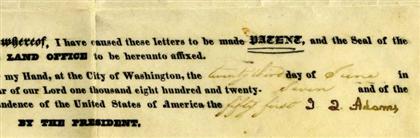 whereof, I have caused these letters to be made PATENT, and the Seal of the
LAND OFFICE to be hereunto affixed.
my Hand, at the City of Washington, the twenty third day of June in
ar of our Lord one thousand eight hundred and twenty- Seven and of the
ndence of the United States of America the fifty first J. Q. Adams
BY THE PRESIDENT,